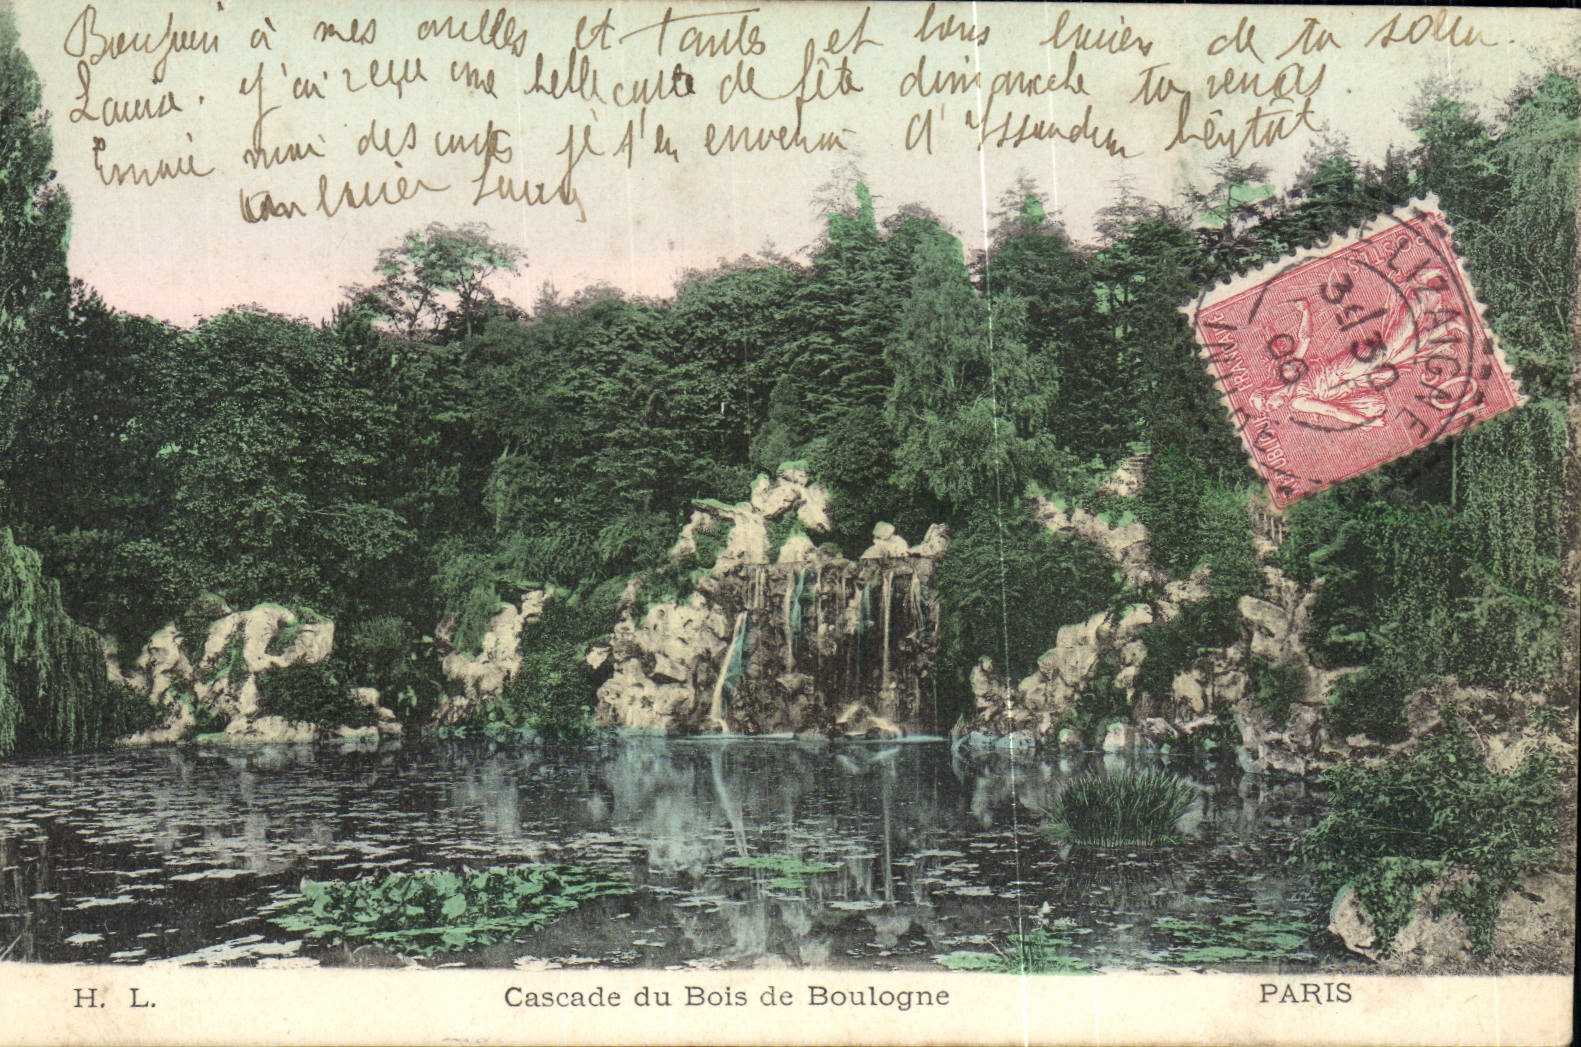 Bonjour à mes oncles et Tantes et bons baisers de ta soeur
Laure. j'ai reçu une belle carte de fête dimanche tu verras.
Envoie moi des cartes je t'en enverrai d'Issoudun bientôt
bon baiser Laure
RÉPUBLIQUE FRANÇAISE
POSTES
10
LIZAIGNE
3E/30
06
H. L.
Cascade du Bois de Boulogne
PARIS